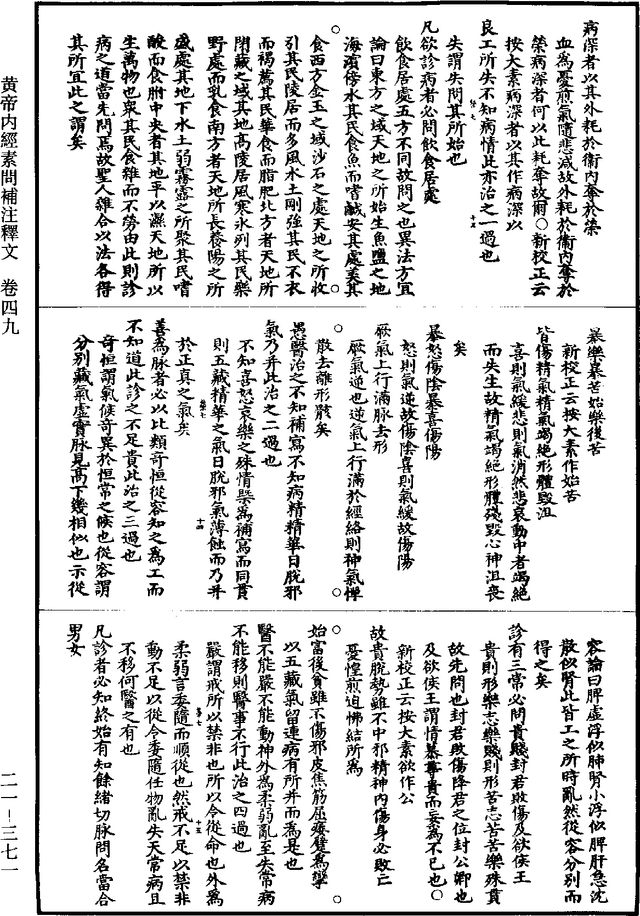 病深者以其外耗於衛內奪於榮
血為憂煎氣隨悲減故外耗於衛內奪於
榮病深者何以此耗奪故爾○新校正云
按大素病深者以其作病深以
良工所失不知病情此亦治之一過也
失謂失問其所始也
凡欲診病者必問飲食居處
飲食居處五方不同故問之也異法方宜
論曰東方之域天地之所始生魚鹽之地
海濱傍水其民食魚而嗜鹹安其處美其
食西方金玉之域沙石之處天地之所收
引其民陵居而多風水土剛強其民不衣
而褐薦其民華食而脂肥北方者天地所
閉藏之域其地高陵居風寒冰列其民樂
野處而乳食南方者天地所長養陽之所
盛處其地下水土弱霧露之所聚其民嗜
酸而食胕中央者其地平以濕天地所以
生萬物也眾其民食雜而不勞由此則診
病之道當先問焉故聖人雜合以法各得
其所宜此之謂矣
暴樂暴苦始樂後苦
新校正云按大素作始苦
皆傷精氣精氣竭絕形體毀沮
喜則氣緩悲則氣消然悲哀動中者竭絕
而失生故精氣竭絕形體殘毀心神沮喪
矣
暴怒傷陰暴喜傷陽
怒則氣逆故傷陰喜則氣緩故傷陽
厥氣上行滿脉去形
厥氣逆也逆氣上行滿於經絡則神氣憚
散去離形骸矣
愚醫治之不知補寫不知病精精華日脫邪
氣乃并此治之二過也
不知喜怒哀樂之殊情槩為補寫而同貫
則五藏精華之氣日脫邪氣薄蝕而乃并
於正真之氣矣
善為脉者必以比類奇恒從容知之為工而
不知道此診之不足貴此治之三過也
奇恒謂氣候奇異於恒常之候也從容謂
分別藏氣虛實脉見高下幾相似也示從
容論曰脾虛浮似肺腎小浮似脾肝急沈
散似腎此皆工之所時亂然從容分別而
得之矣
診有三常必問貴賤封君敗傷及欲侯王
貴則形樂志樂賤則形苦志苦苦樂殊貫
故先問也封君敗傷降君之位封公卿也
及欲侯王謂情慕尊貴而妄為不已也○
新校正云按大素欲作公
故貴脫勢雖不中邪精神內傷身必敗亡
憂惶煎迫怫結所為
始富後貧雖不傷邪皮焦筋屈痿躄為攣
以五藏氣留連病有所并而為是也
醫不能嚴不能動神外為柔弱亂至失常病
不能移則醫事不行此治之四過也
嚴謂戒所以禁非也所以令從命也外為
柔弱言委隨而順從也然戒不足以禁非
動不足以從令委隨任物亂失天常病且
不移何醫之有也
凡診者必知終始有知餘緒切脉問名當合
男女
黃帝內經素問補注釋文　卷四九
二一－三七一